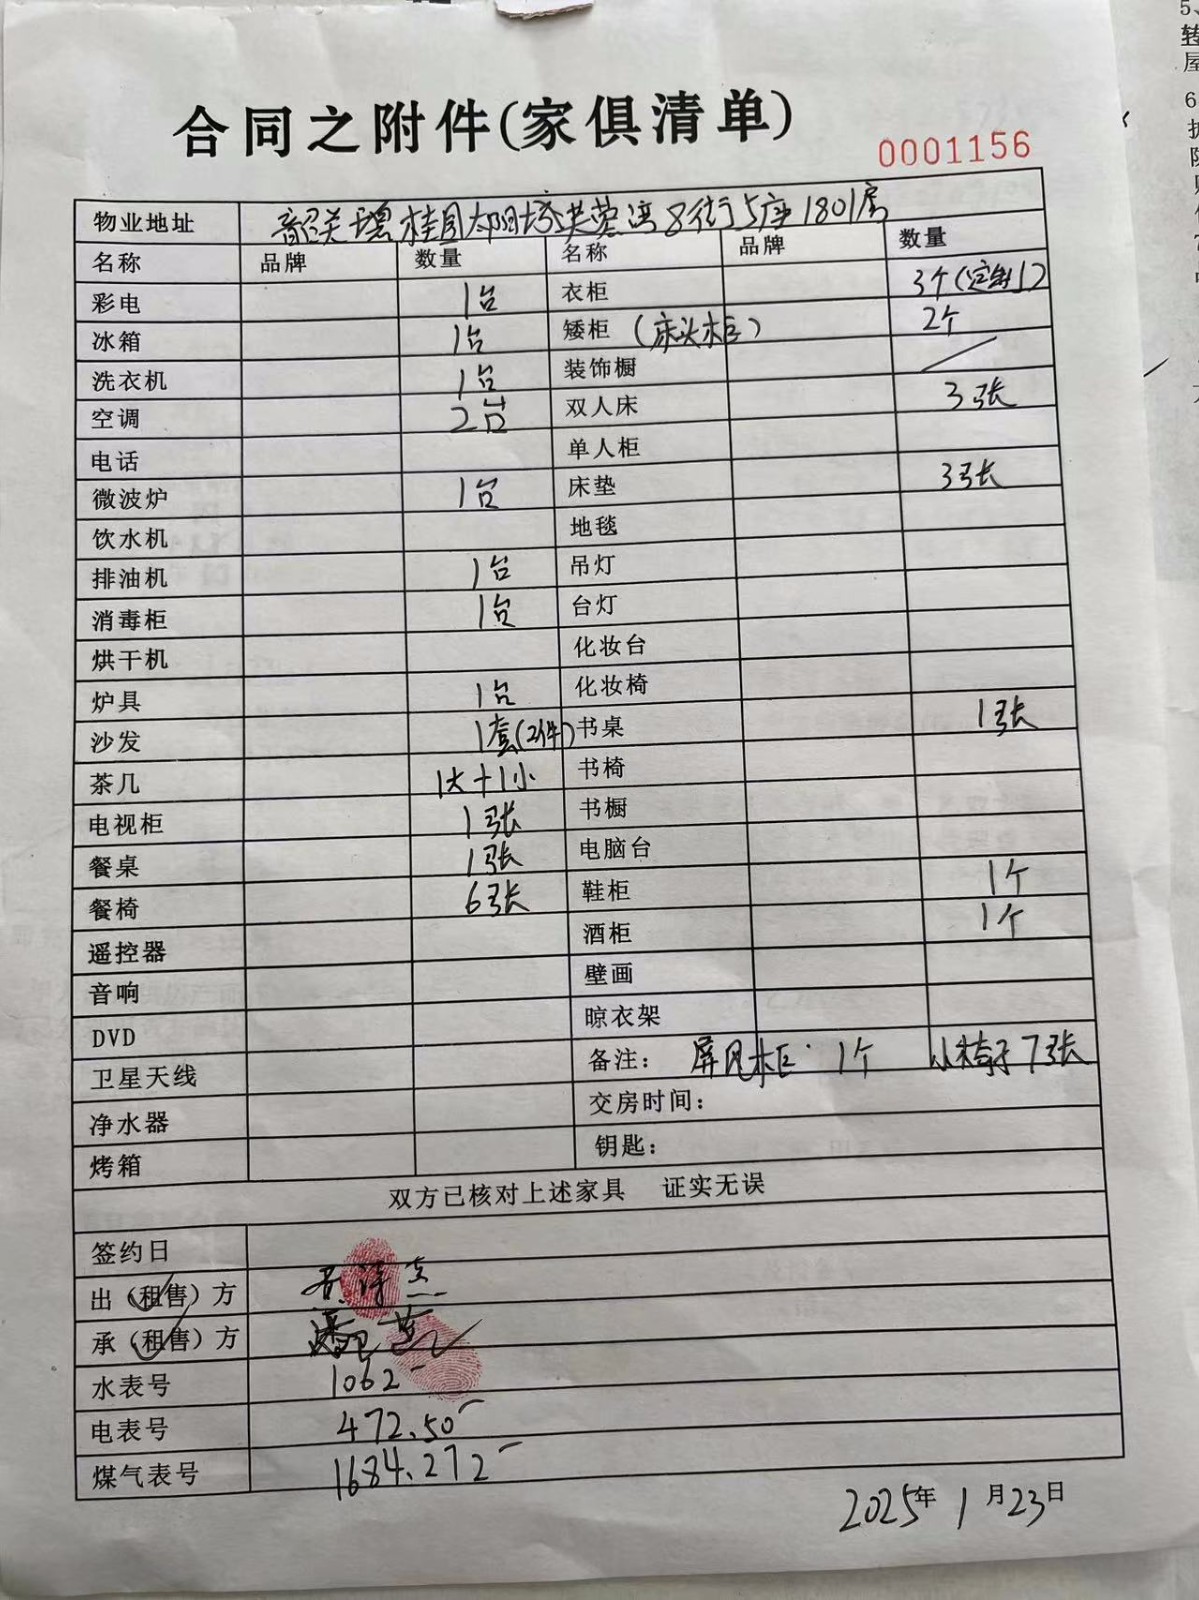 合同之附件(家俱清单)
0001156
物业地址 韶关碧桂园太阳城芙蓉湾8街5座1801房
名称 品牌 数量 名称 品牌 数量
彩电 1台 衣柜 3个(定制)
冰箱 1台 矮柜(床头柜) 2个
洗衣机 1台 装饰橱 /
空调 2台 双人床 3张
电话 单人柜
微波炉 1台 床垫 3张
饮水机 地毯
排油机 1台 吊灯
消毒柜 1台 台灯
烘干机 化妆台
炉具 1台 化妆椅
沙发 1套(2件) 书桌 1张
茶几 1大+1小 书椅
电视柜 1张 书橱
餐桌 1张 电脑台
餐椅 6张 鞋柜 1个
遥控器 酒柜 1个
音响 壁画
DVD 晾衣架
卫星天线 备注: 屏风柜:1个 小椅子7张
净水器 交房时间:
烤箱 钥匙:
双方已核对上述家具 证实无误
签约日
出(租售)方
承(租售)方
水表号 1062
电表号 472.50
煤气表号 1684.272
2025年1月23日
5、
转
屋
6